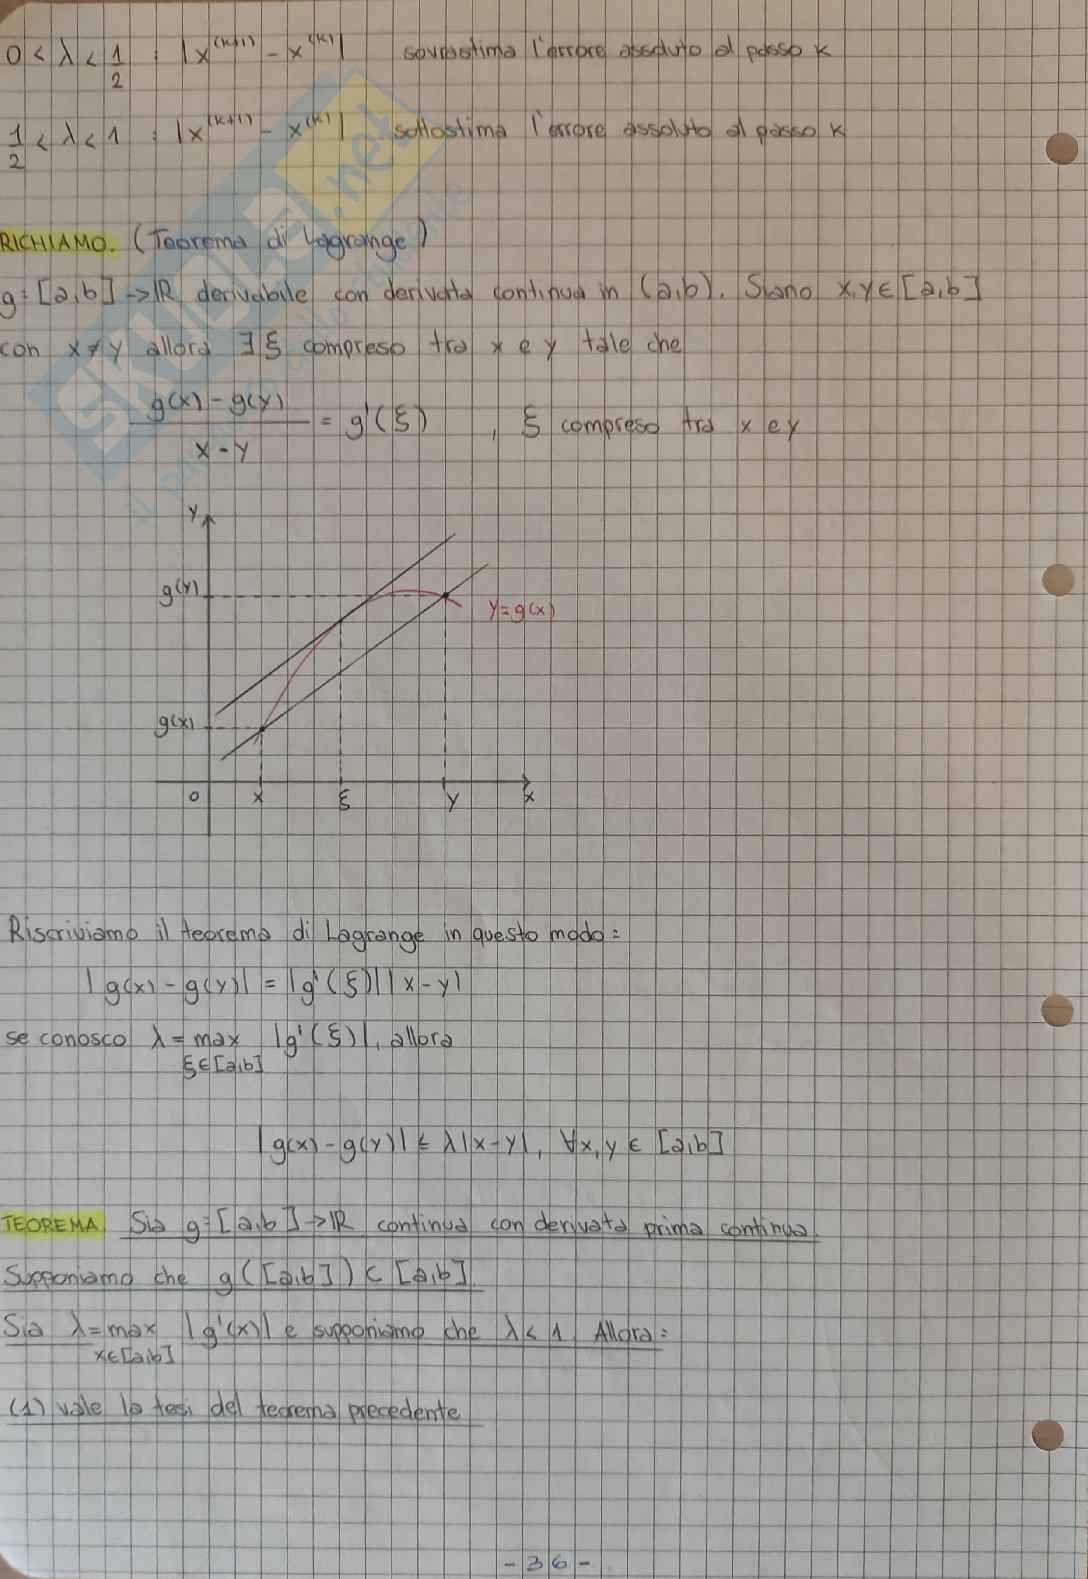 0 < λ < 1/2 : |x^(k+1) - x^(k)| sovrastima l'errore assoluto al passo k
1/2 < λ < 1 : |x^(k+1) - x^(k)| sottostima l'errore assoluto al passo k
RICHIAMO. (Teorema di Lagrange)
g: [a,b] -> ℝ derivabile con derivata continua in (a,b). Siano x,y ∈ [a,b]
con x ≠ y allora ∃ ξ compreso tra x e y tale che
(g(x) - g(y)) / (x - y) = g'(ξ) , ξ compreso tra x e y
y
g(y)
y=g(x)
g(x)
0 x ξ y x
Riscriviamo il teorema di Lagrange in questo modo:
|g(x) - g(y)| = |g'(ξ)| |x-y|
se conosco λ = max |g'(ξ)|, allora
ξ∈[a,b]
|g(x) - g(y)| ≤ λ|x-y|, ∀x,y ∈ [a,b]
TEOREMA. Sia g: [a,b] -> ℝ continua con derivata prima continua.
Supponiamo che g([a,b]) ⊂ [a,b].
Sia λ = max |g'(x)| e supponiamo che λ < 1. Allora:
x∈[a,b]
(1) vale la tesi del teorema precedente
- 36 -
SKUOLA.net